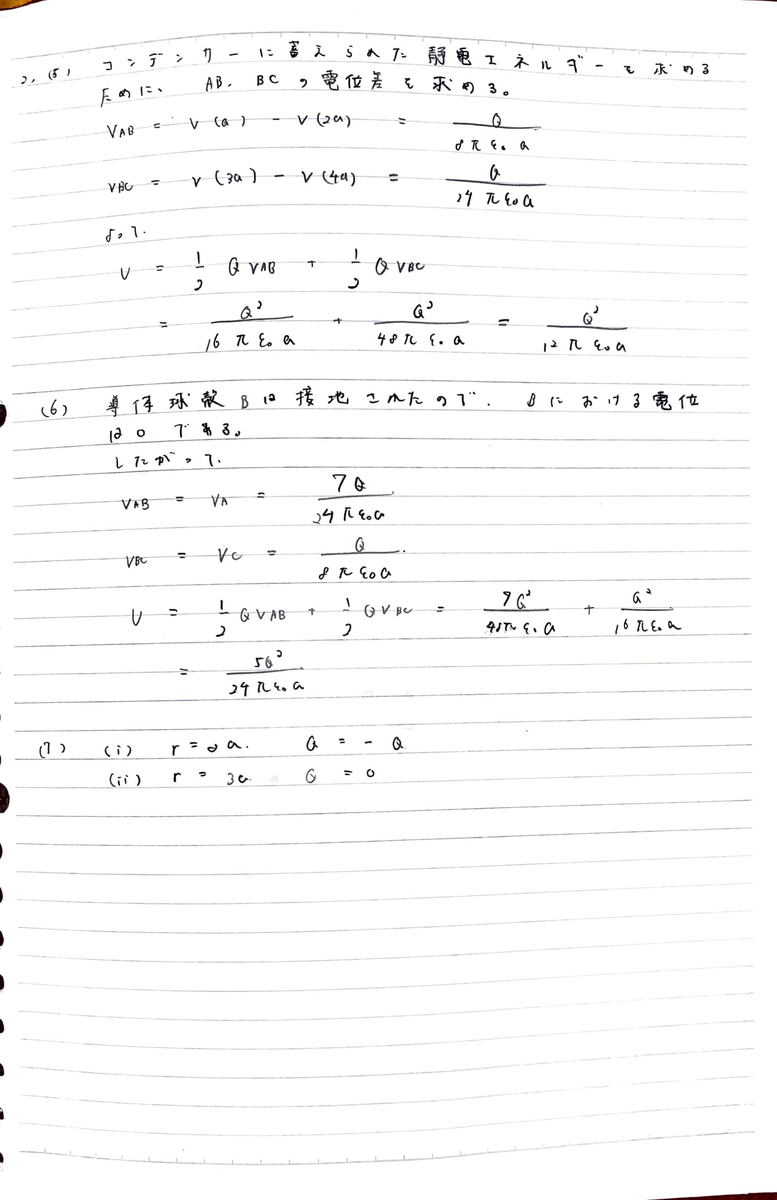 2, (5) コンデンサーに蓄えられた静電エネルギーを求める
ために、 AB, BC の電位差を求める。
VAB = V(a) - V(2a) = Q / 8πε₀a
VBC = V(3a) - V(4a) = Q / 24πε₀a
よって.
U = 1/2 Q VAB + 1/2 Q VBC
= Q² / 16πε₀a + Q² / 48πε₀a = Q² / 12πε₀a
(6) 導体球殻Bは接地されたので. Bにおける電位
は0である。
したがって.
VAB = VA = 7Q / 24πε₀a
VBC = VC = Q / 8πε₀a.
U = 1/2 Q VAB + 1/2 Q VBC = 7Q² / 48πε₀a + Q² / 16πε₀a
= 5Q² / 24πε₀a
(7) (i) r = 2a. Q = - Q
(ii) r = 3a. Q = 0